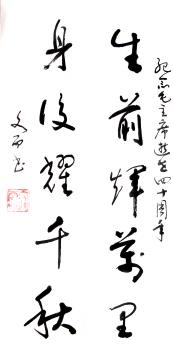 纪念毛主席逝世四十周年
生前辉万里
身后耀千秋
文而书